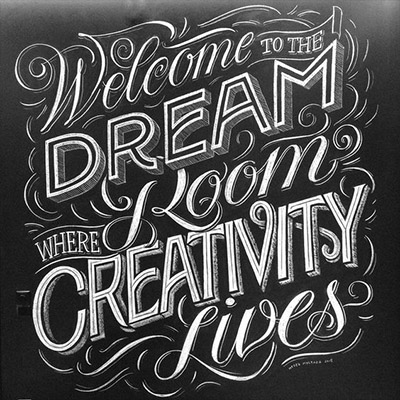 Welcome TO THE
DREAM
Room
WHERE
CREATIVITY
Lives